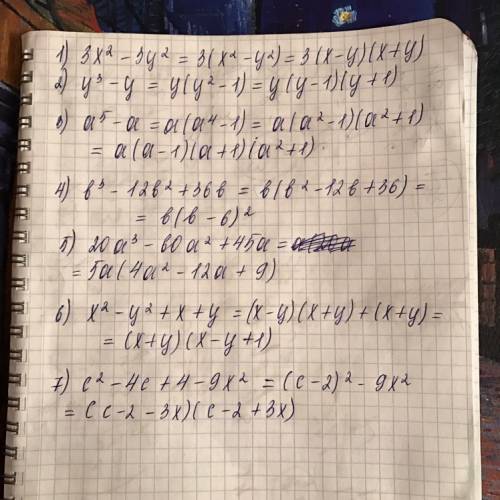 1) 3x² - 3y² = 3(x² - y²) = 3(x-y)(x+y)
2) y³ - y = y(y² - 1) = y(y-1)(y+1)
3) a⁵ - a = a(a⁴ - 1) = a(a² - 1)(a² + 1)
= a(a-1)(a+1)(a²+1)
4) b³ - 12b² + 36b = b(b² - 12b + 36) =
= b(b - 6)²
5) 20a³ - 60a² + 45a =
= 5a(4a² - 12a + 9)
6) x² - y² + x + y = (x-y)(x+y) + (x+y) =
= (x+y)(x-y+1)
7) c² - 4c + 4 - 9x² = (c-2)² - 9x²
= (c-2-3x)(c-2+3x)